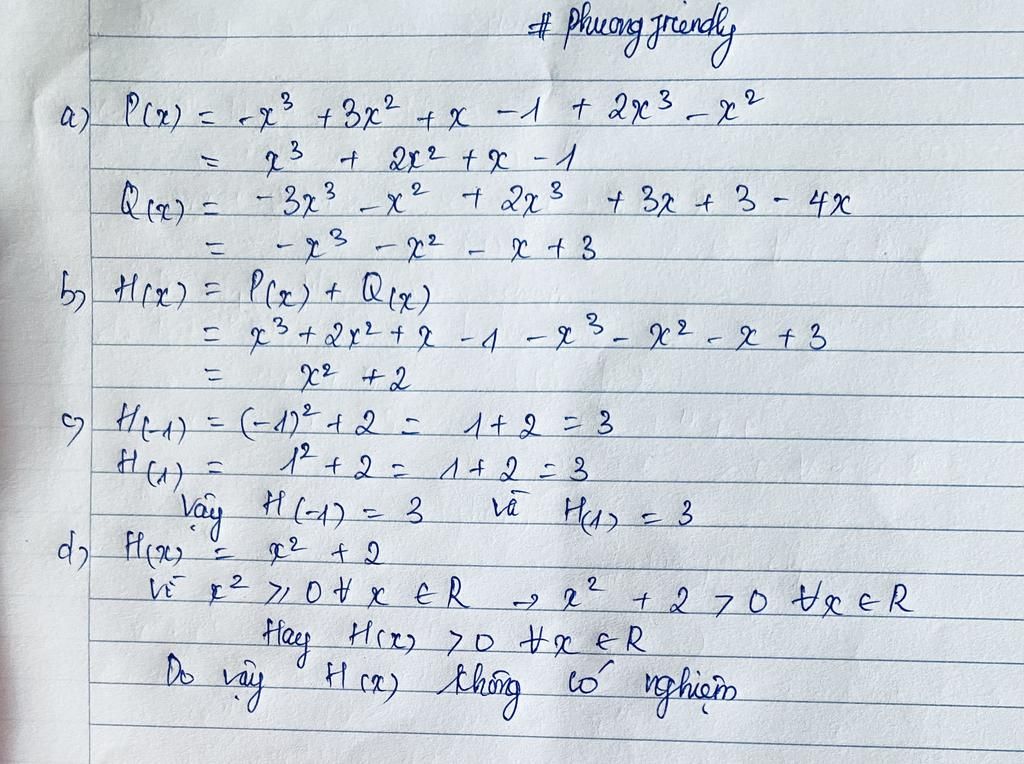 # phuongfriendly
a) P(x) = -x³ + 3x² + x - 1 + 2x³ - x²
= x³ + 2x² + x - 1
Q(x) = -3x³ - x² + 2x³ + 3x + 3 - 4x
= -x³ - x² - x + 3
b) H(x) = P(x) + Q(x)
= x³ + 2x² + x - 1 - x³ - x² - x + 3
= x² + 2
c) H(-1) = (-1)² + 2 = 1 + 2 = 3
H(1) = 1² + 2 = 1 + 2 = 3
Vậy H(-1) = 3 và H(1) = 3
d) H(x) = x² + 2
Vì x² ⩾ 0 ∀ x ∈ R → x² + 2 > 0 ∀x ∈ R
Hay H(x) > 0 ∀x ∈ R
Do vậy H(x) không có nghiệm